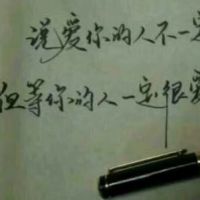 说爱你的人不一定
但等你的人一定很爱